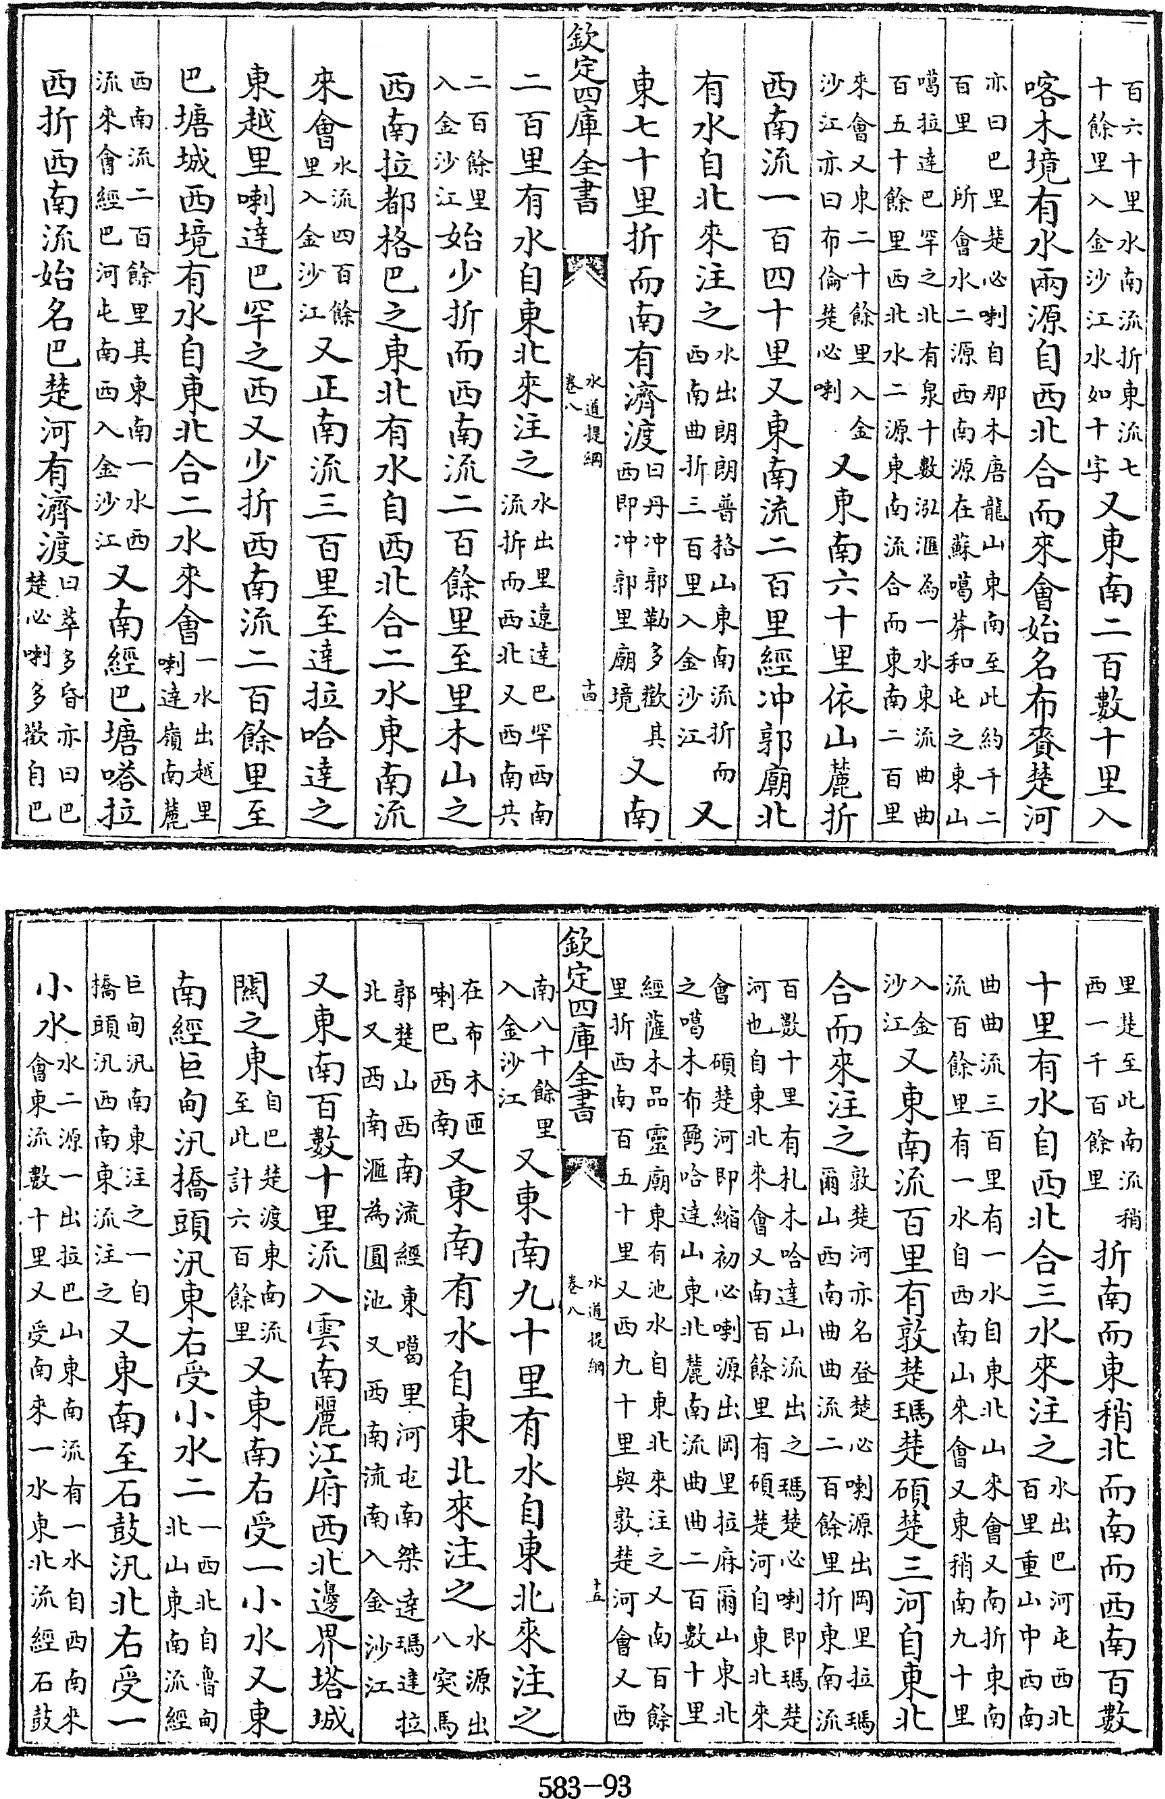 百六十里水南流折東流七
十餘里入金沙江水如十字
又東南二百數十里入
喀木境有水兩源自西北合而來會始名布賚楚河
亦曰巴里楚必喇自那木唐龍山東南至此約千二
百里 所會水二源西南源在蘇噶莽和屯之東山
噶拉達巴罕之北有泉十數泓滙為一水東流曲曲
百五十餘里西北水二源東南流合而東南二百里
來會又東二十餘里入金
沙江亦曰布倫楚必喇
又東南六十里依山麓折
西南流一百四十里又東南流二百里經冲郭廟北
有水自北來注之
水出朗朗普格山東南流折而
西南曲折三百里入金沙江
又
東七十里折而南有濟渡
曰丹冲郭勒多歡其
西即冲郭里廟境
又南
欽定四庫全書
水道提綱
卷八
十四
二百里有水自東北來注之
水出里遠達巴罕西南
流折而西北又西南共
二百餘里
入金沙江
始少折而西南流二百餘里至里木山之
西南拉都格巴之東北有水自西北合二水東南流
來會
水流四百餘
里入金沙江
又正南流三百里至達拉哈達之
東越里喇達巴罕之西又少折西南流二百餘里至
巴塘城西境有水自東北合二水來會
一水出越里
喇達嶺南麓
西南流二百餘里其東南一水西
流來會經巴河屯南西入金沙江
又南經巴塘嗒拉
西折西南流始名巴楚河有濟渡
曰萃多昏亦曰巴
楚必喇多歡自巴
里楚至此南流稍
西一千百餘里
折南而東稍北而南而西南百數
十里有水自西北合三水來注之
水出巴河屯西北
百里重山中西南
曲曲流三百里有一水自東北山來會又南折東南
流百餘里有一水自西南山來會又東稍南九十里
入金
沙江
又東南流百里有敦楚瑪楚碩楚三河自東北
合而來注之
敦楚河亦名登楚必喇源出岡里拉瑪
爾山西南曲曲流二百餘里折東南流
百數十里有札木哈達山流出之瑪楚必喇即瑪楚
河也自東北來會又南百餘里有碩楚河自東北來
會 碩楚河即縮初必喇源出岡里拉麻爾山東北
之噶木布爵哈達山東北麓南流曲曲二百數十里
經薩木品靈廟東有池水自東北來注之又南百餘
里折西南百五十里又西九十里與敦楚河會又西
欽定四庫全書
水道提綱
卷八
十五
南八十餘里
入金沙江
又東南九十里有水自東北來注之
在布木匝
喇巴西南
又東南有水自東北來注之
水源出
八突馬
郭楚山西南流經東噶里河屯南桀達瑪達拉
北又西南滙為圓池又西南流南入金沙江
又東南百數十里流入雲南麗江府西北邊界塔城
關之東
自巴楚渡東南流
至此計六百餘里
又東南右受一小水又東
南經巨甸汛橋頭汛東右受小水二
一西北自魯甸
北山東南流經
巨甸汛南東注之一自
橋頭汛西南東流注之
又東南至石鼓汛北右受一
小水
水二源一出拉巴山東南流有一水自西南來
會東流數十里又受南來一水東北流經石鼓
583-93